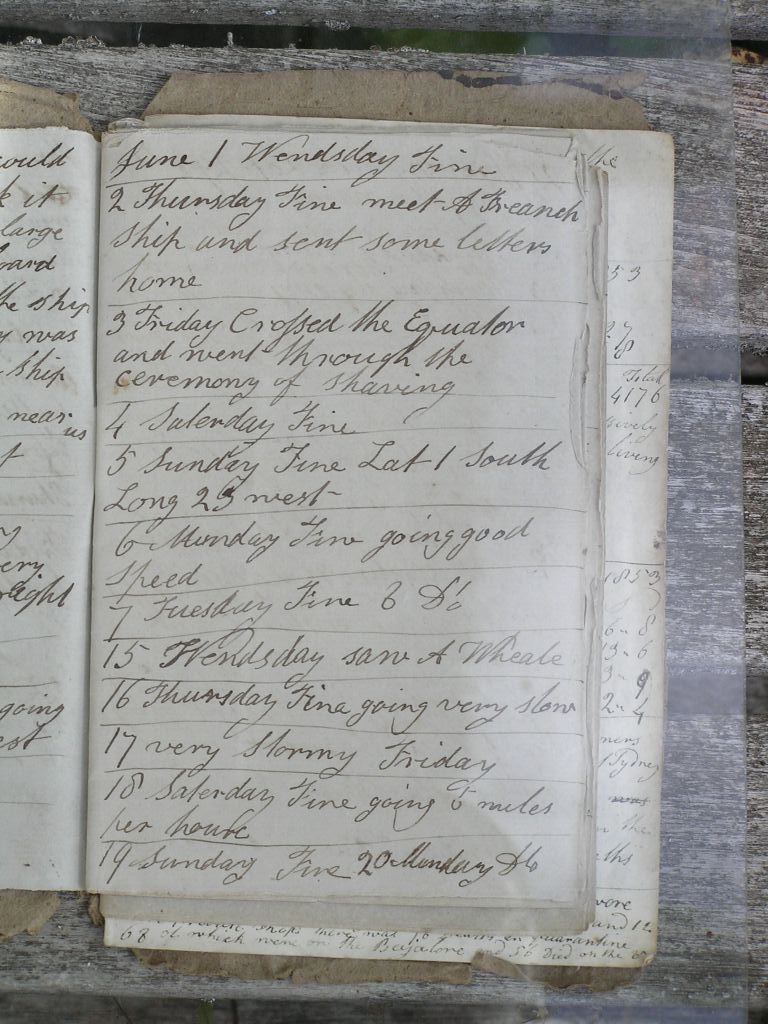 ould
k it
large
oard
the ship
y was
ship
near us
t
y
ery
eight
going
est
June 1 Wendsday Fine
2 Thursday Fine meet A Freanch
Ship and sent some letters
home
3 Friday Crossed the Equator
and went through the
ceremony of Shaving
4 Saterday Fine
5 Sunday Fine Lat 1 South
Long 23 west
6 Munday Fine going good
Speed
7 Tuesday Fine & Do
15 Wendsday saw A Wheale
16 Thursday Fine going very slow
17 very Stormy Friday
18 Saterday Fine going 5 miles
per houre
19 Sunday Fine 20 Munday Do
the
53
Total
4176
sively
living
1853
6 " 8
13 " 6
3 " 9
2 " 4
ners
Sydney
was
the
ths
wore
and 12
ships there was 16 in quarantine
68 of which were on the Bajalore and 56 Died on the